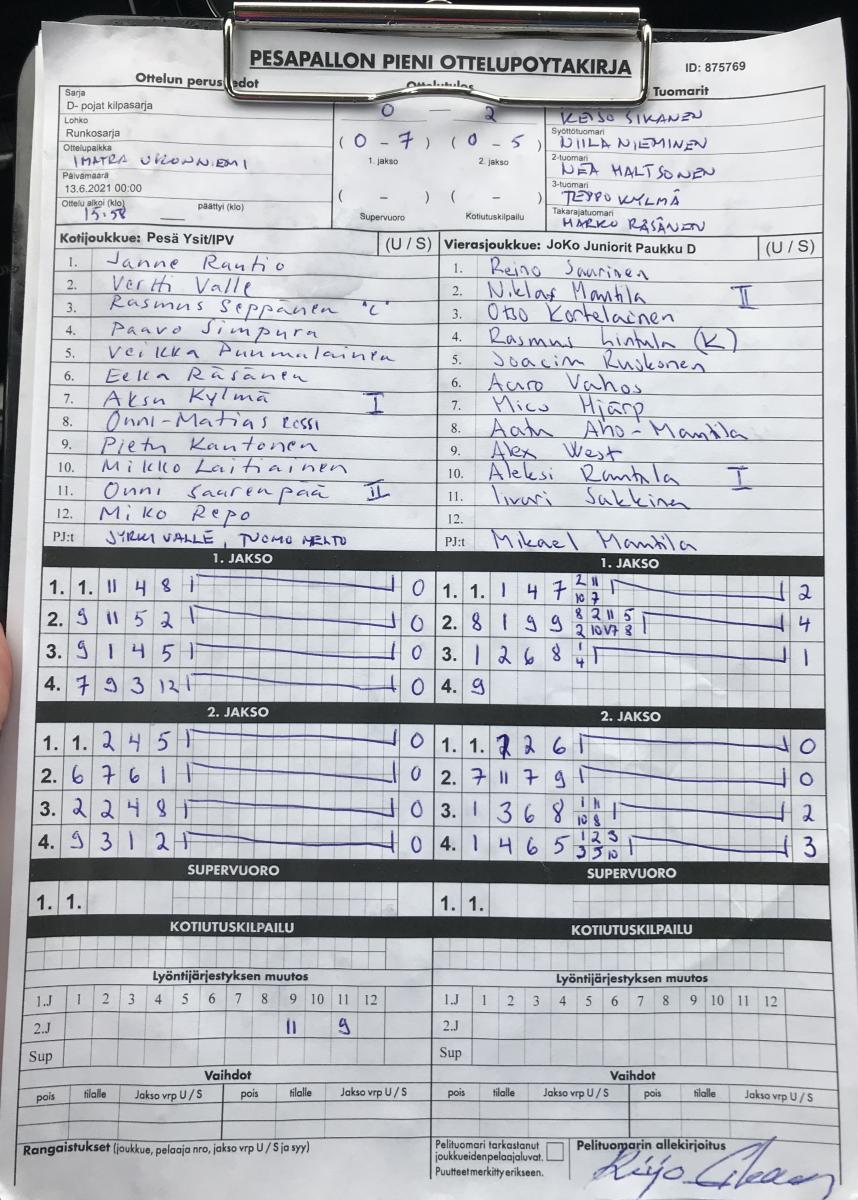 PESAPALLON PIENI OTTELUPOYTAKIRJA
ID: 875769
Ottelun perus edot
Tuomarit
Sarja
D- pojat kilpasarja
Lohko
Runkosarja
Ottelupaikka
IMATRA UKONNIEMI
Päivämäärä
13.6.2021 00:00
Ottelu alkoi (klo) päättyi (klo)
15:58
0 — 2
(0 - 7) (0 - 5)
1. jakso 2. jakso
( - ) ( - )
Supervuoro Kotiutuskilpailu
REIJO SIKANEN
Syöttötuomari
NIILA NIEMINEN
2-tuomari
NEA MALTSONEN
3-tuomari
TEPPO KYLMÄ
Takarajatuomari
MARKO RÄSÄNEN
Kotijoukkue: Pesä Ysit/IPV (U / S)
1. Janne Rautio
2. Vertti Valle
3. Rasmus Seppänen "C"
4. Paavo Simpura
5. Veikka Puumalainen
6. Eeka Räsänen
7. Aksu Kylmä I
8. Onni-Matias Rossi
9. Pietu Kautonen
10. Mikko Laitiainen
11. Onni Saarenpää II
12. Miko Repo
PJ:t JYRKI VALLE, TUOMO MELTO
Vierasjoukkue: JoKo Juniorit Paukku D (U / S)
1. Reino Saarinen
2. Niklas Mantila II
3. Otso Kortelainen
4. Rasmus Lintula (K)
5. Joacim Ruskonen
6. Auro Vahos
7. Mico Hjärp
8. Aatu Aho-Mantila
9. Alex West
10. Aleksi Rantala I
11. Iivari Sakkinen
12.
PJ:t Mikael Mantila
1. JAKSO
1. 1. 11 4 8 0
2. 9 11 5 2 0
3. 9 1 4 5 0
4. 7 9 3 12 0
2. JAKSO
1. 1. 2 4 5 0
2. 6 7 6 1 0
3. 2 2 4 8 0
4. 9 3 1 2 0
SUPERVUORO
1. 1.
KOTIUTUSKILPAILU
1. JAKSO
1. 1. 1 4 7 2 11 2
10 7
2. 8 1 9 9 8 2 11 5 4
2 10 7 8
3. 1 2 6 8 1 1
4
4. 9
2. JAKSO
1. 1. 2 2 6 0
2. 7 11 7 9 0
3. 1 3 6 8 1 11 2
10 8
4. 1 4 6 5 1 2 3 3
3 5 10
SUPERVUORO
1. 1.
KOTIUTUSKILPAILU
Lyöntijärjestyksen muutos
1.J 1 2 3 4 5 6 7 8 9 10 11 12
2.J 11 9
Sup
Vaihdot
pois tilalle Jakso vrp U / S pois tilalle Jakso vrp U / S
Lyöntijärjestyksen muutos
1.J 1 2 3 4 5 6 7 8 9 10 11 12
2.J
Sup
Vaihdot
pois tilalle Jakso vrp U / S pois tilalle Jakso vrp U / S
Rangaistukset (joukkue, pelaaja nro, jakso vrp U / S ja syy)
Pelituomari tarkastanut
joukkueidenpelaajaluvat.
Puutteet merkitty erikseen.
Pelituomarin allekirjoitus